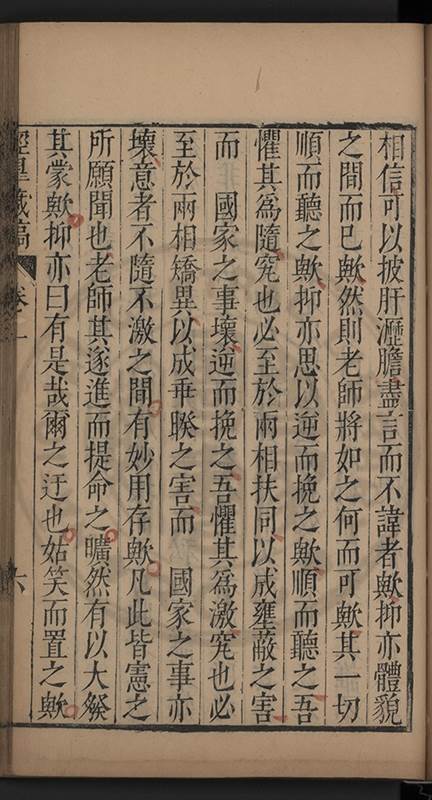 相信可以披肝瀝膽盡言而不諱者歟抑亦體貌
之間而已歟然則老師將如之何而可歟其一切
順而聽之歟抑亦思以逆而挽之歟順而聽之吾
懼其為隨究也必至於兩相扶同以成壅蔽之害
而　國家之事壞逆而挽之吾懼其為激究也必
至於兩相矯異以成乖睽之害而　國家之事亦
壞意者不隨不激之間有妙用存歟凡此皆憲之
所願聞也老師其遂進而提命之曠然有以大發
其蒙歟抑亦曰有是哉爾之迂也姑笑而置之歟
涇臯藏稿 卷二 六